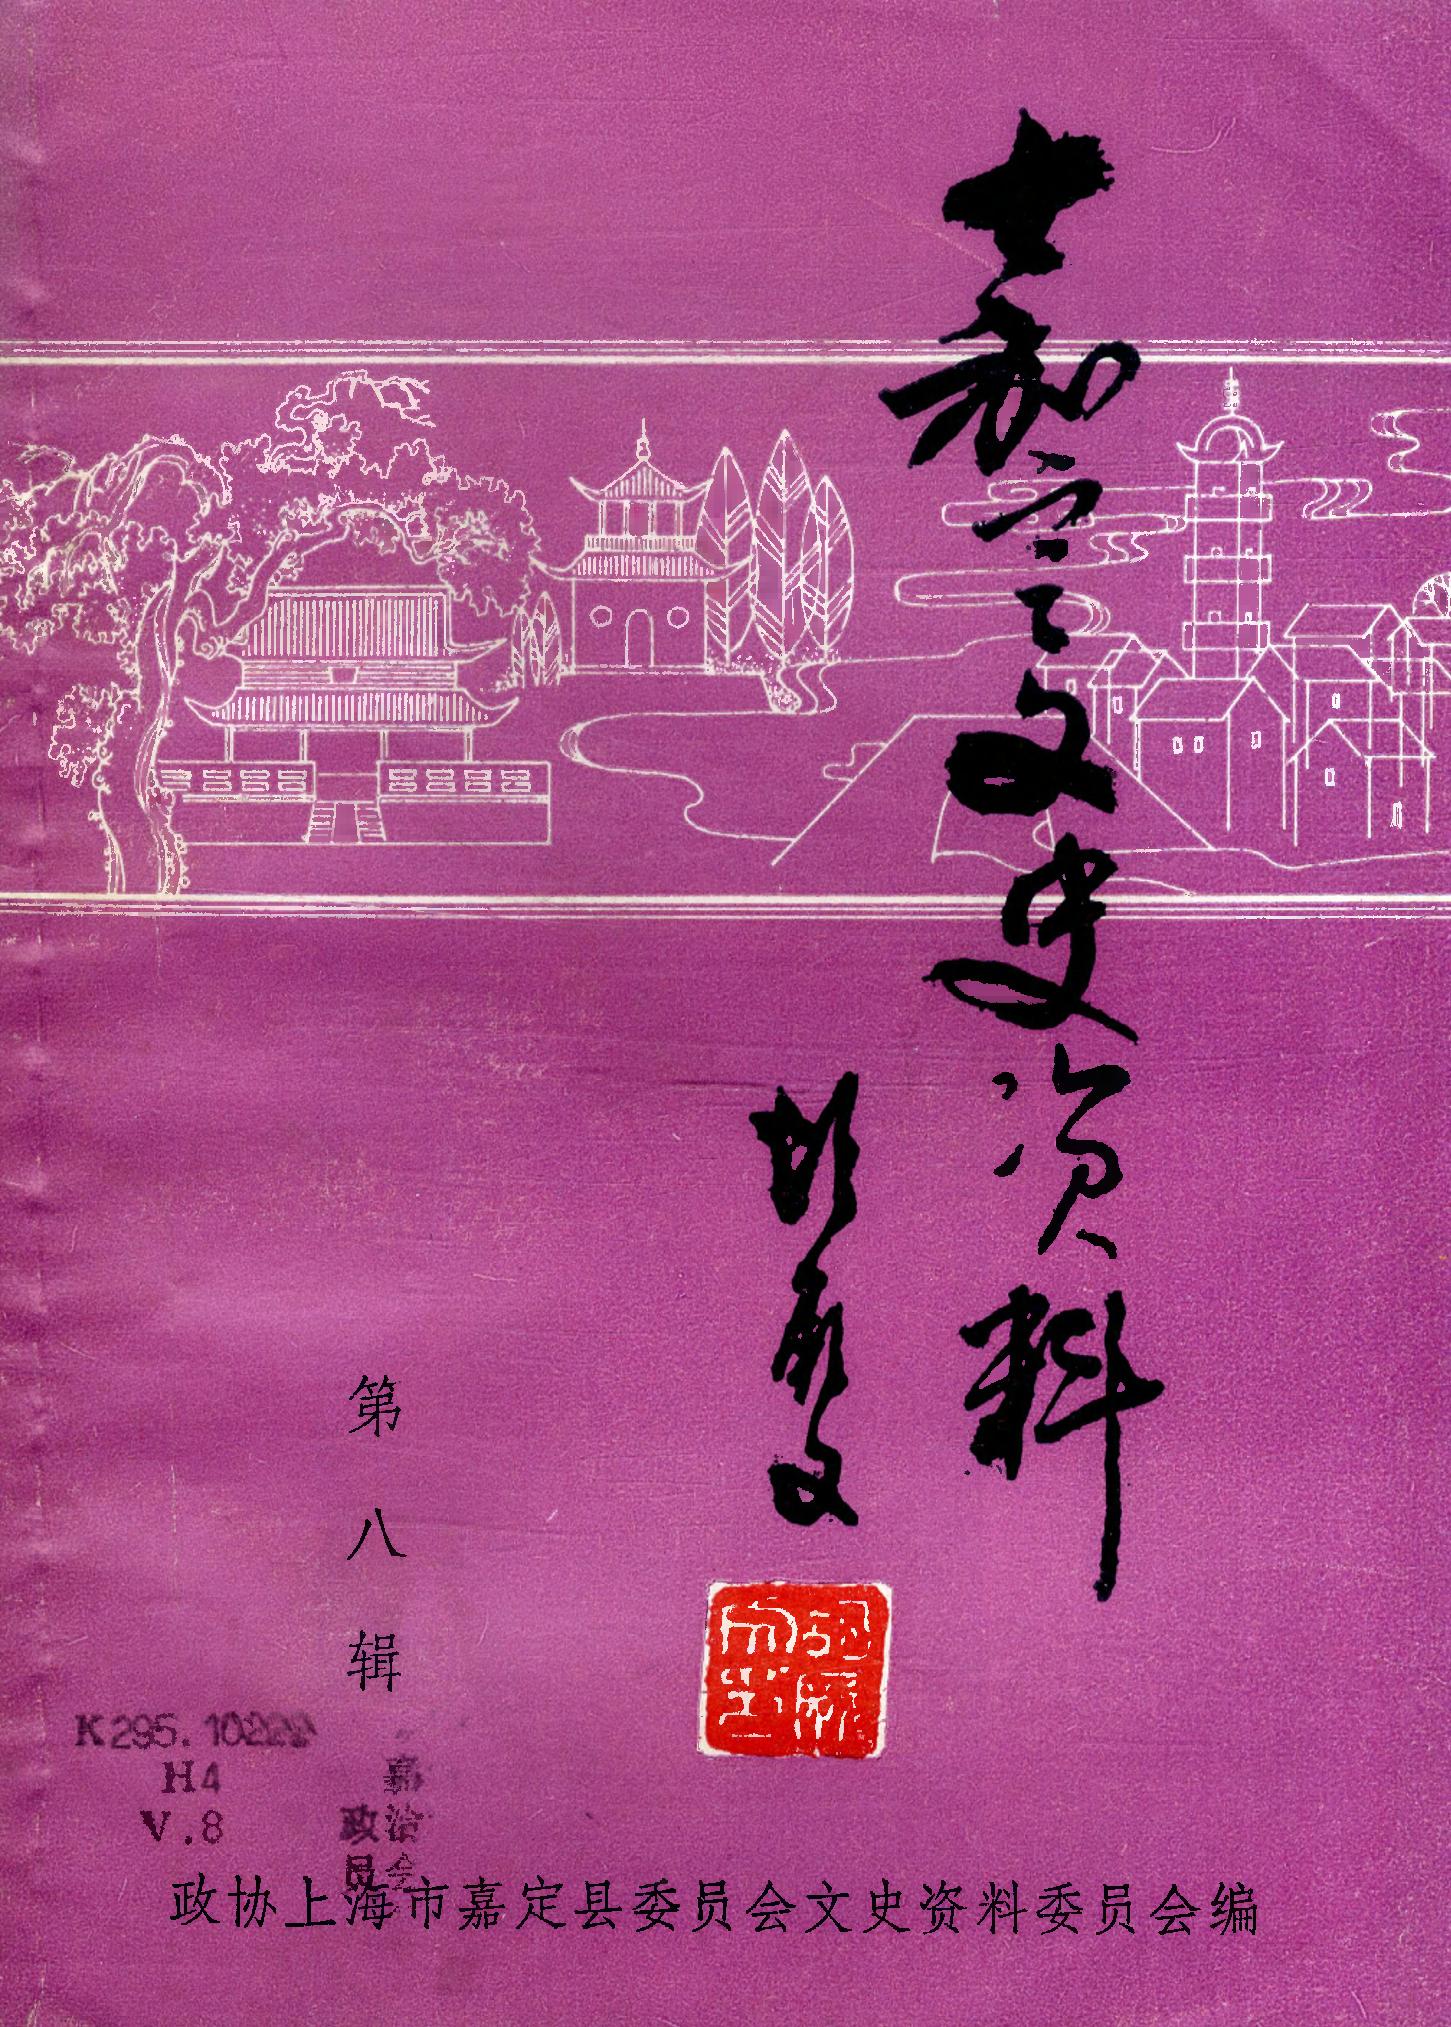 嘉定文史资料
胡厥文
第八辑
H4
V.8
嘉
政治
员会
政协上海市嘉定县委员会文史资料委员会编